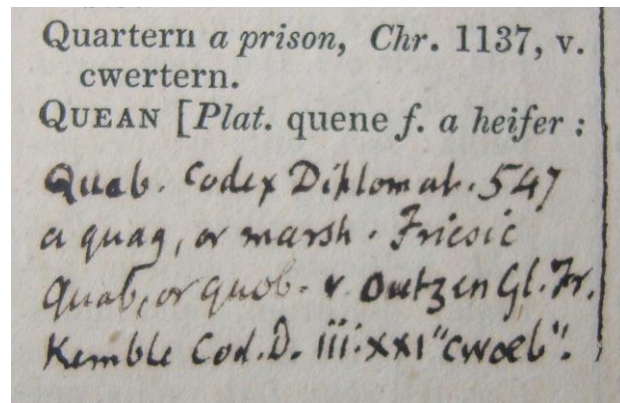 Quartern a prison, Chr. 1137, v.
cwertern.
QUEAN [Plat. quene f. a heifer :
Quab. Codex Diplomat. 547
a quag, or marsh. Friesic
Quab, or quob. v. Outzen Gl. Fr.
Kemble Cod. D. iii. xxi "cwæb".